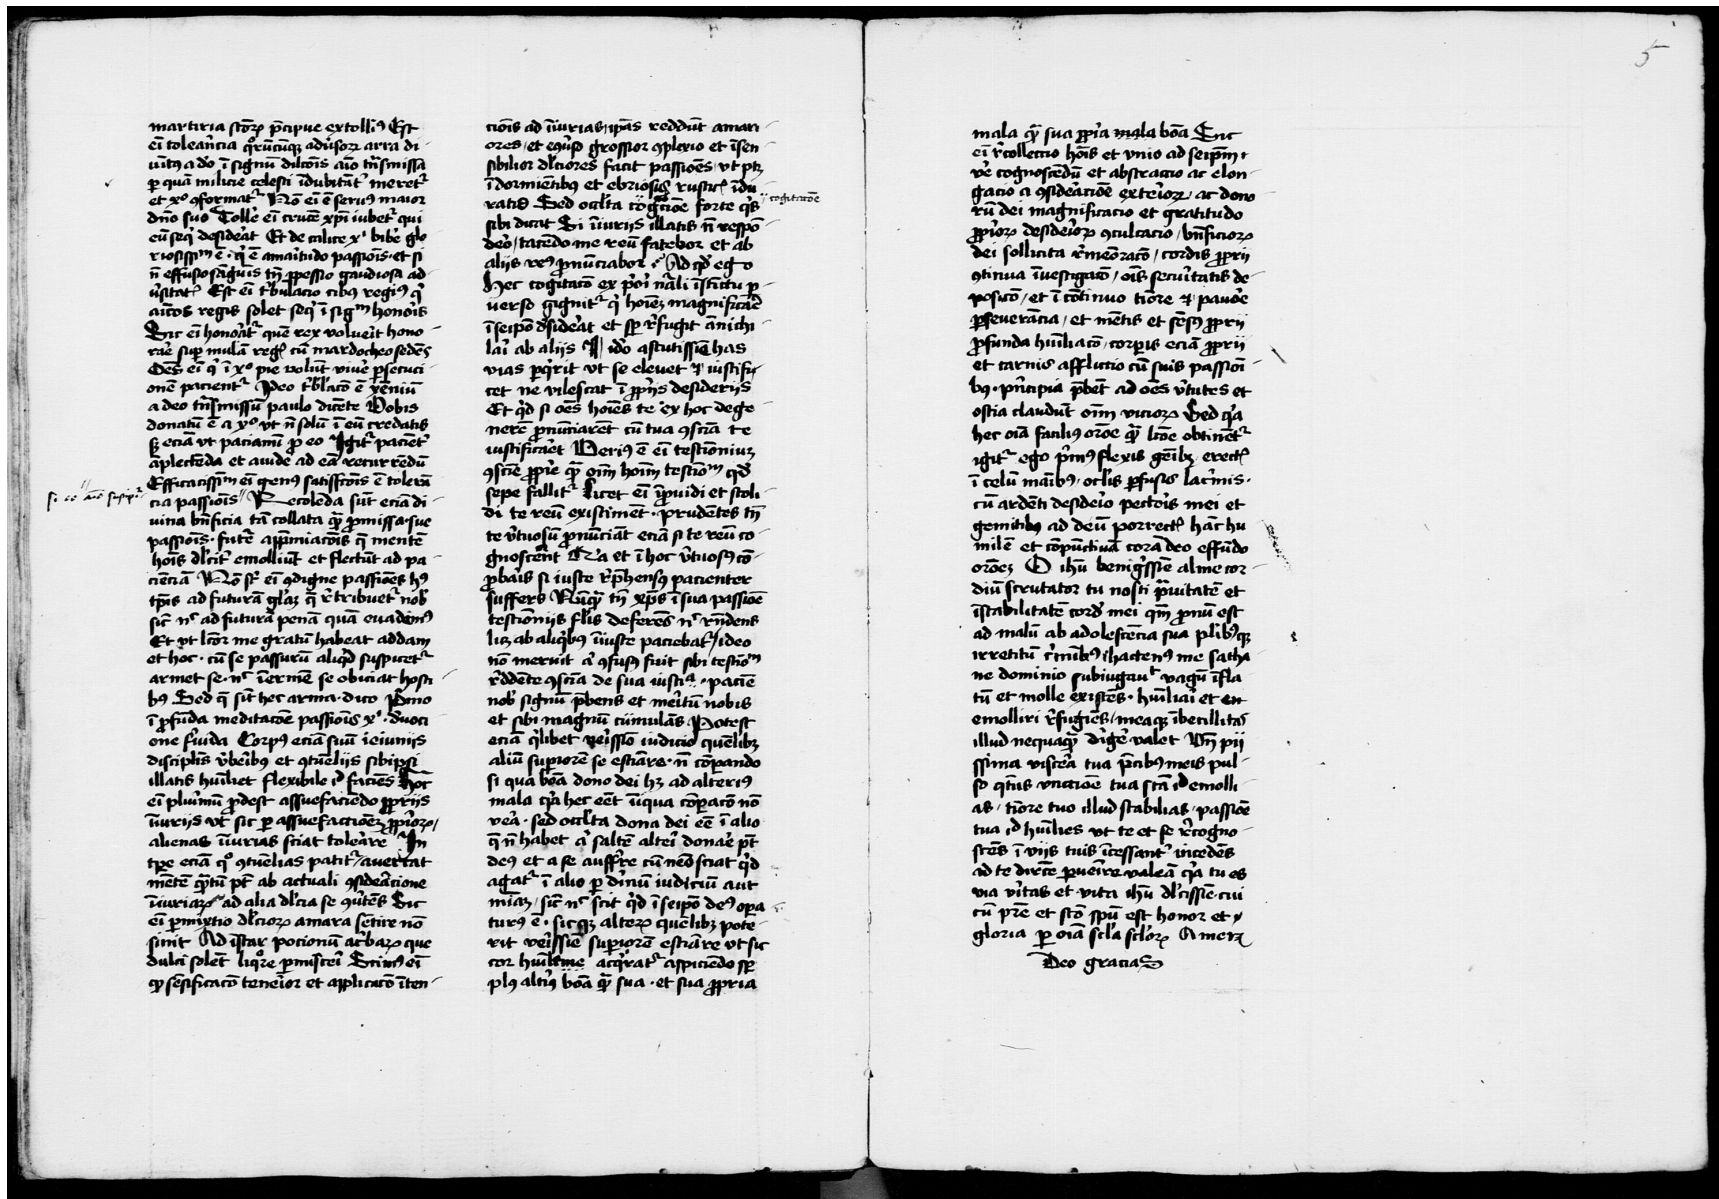 martiria sctōꝝ p̄cipue extollit᷒ Est
eī tolerācia qͦrūcūqꝫ aduͥsoꝝ arra di-
uīt᷒ a dō ī signum dilcōīs aīo trāsmissa
ꝑ quā milicie celesti īdubitāt᷑ meret᷑
et xͦ ꝯformat᷑ Nō eī ē seru᷒ maior
dn̄o suo Tolle᷑ eī crucē xpī iubet᷑ qui
eū seqͥ desiderat Et de calice xͥ bibe᷑ glo
riosissᵐ ē · qͣ ē amaritudo passiōis · et si
n̄ effusio sāguis tn̄ ꝓpessio gaudiosa ad
Est eī tͥbulacio cibus regi᷒ qͥ
amicos regis solet seqͥ ī sigᵐ honoīs
Sic eī honorat᷑ quē rex voluerit hono
rare suꝑ mulā regꝭ cū mardocheo sedēs
Oēs eī qͥ ī xͦ pie volūt viue᷑ ꝑsecuci
onē pacient᷑ Ideo tͥbulacō ē xēniū
a deo trāsmissū paulo dicēte Vobis
donatū ē a xͦ vt n̄ solū ī eū credatis
sꝫ eciā vt paciamī ꝓ eo Igit᷑ paciēt᷑
āplectēda et auide ad eā recurrēdū
Efficacissim eī gen᷒ satisfcōīs ē tolerā
cia passiōīs Recolēda sūt eciā di
si cō aīo suscipit᷑
uina bn̄ficia tā collata qͣ̄ ꝓmissa · sue
passiōīs · future appͥmiacōīs q̄ mentē
hoīs dulcit᷑ emolliūt et flectūt ad pa
cienciā Nō st᷑ eī ꝯdigne passiōes hͥ᷒
tꝑis ad futurā glaꝫ q̄ rͥtribuet᷑ nob᷑
sic̄ nͨ ad futurā penā quā euadem᷒
Et vt lc̄or me gratū habeat addam
et hoc · cū se passurū aliqͥd suspicet᷑
armet se · nͨ īermē se obiciat hosti
b᷒ Sed q̄ sūt hec arma · dico Pͥmo
ī ꝓfūda meditacōe passiōīs xͥ · deuoci
one fͣuida Corp᷒ eciā suū ieiuniis
disciplīs vͥberib᷒ et ꝯtuēliis sibiipsi
illatis huīliet flexibile id faciēs Hoc
eī plurimū ꝓdest assuefaciēdo ꝓpriis
īiuriis vt sic ꝑ assuefactiōeꝫ ꝓpͥoꝝ
alienas īiurias sciat tolerare In
tꝑe eciā qͦ ꝯtuēlias patit᷑ auertat
mētē qͣ̄tū pt̄ ab actuali ꝯsideracione
īiuriaꝝ ad alia dulcia se ꝯuͥtēs Sic
eī ꝑmixtio dulcioꝝ amara sētire nō
sinit Ad īstar pocionū acͥbaꝝ que
dulci solēt liqͦre ꝑmisceri Scim᷒ eī
qͥ sēsificacō teneͥor et applicacō īten-
cioīs ad īiurias ip̄as reddūt amari-
ores · et eqͥuͥso grossior ꝯplexio et īsen-
sibilior dulciores facit passiōēs · vt ptꝫ
ī dormiētibus et ebriosis rusticꝭ īdu-
ratis Sed occulta cogitacōe forte qͥs
cogitacōe
sibi dicat Si īiuriis illatis n̄ respō
deo tacēdo me reū fatebor et ab
aliis re᷒ ꝓnūciabor Ad qͥd ego
Hec cogitacō ex pͥori nāli īstīctu ꝑ
uerso gignit᷑ qͥ hoīeꝫ magnificare
ī seipō desiderat et sꝑ rͥfugit ānichi
lari ab aliis Id̄o astutissie has
vias ꝑqͥrit vt se eleuet et iustifi
cet ne vilescat ī ꝓpriis desideriis
Et qͥd si oēs hoīes te ex hoc dege
nere ꝓnūciarēt cū tua ꝯsciā te
iustificaret Veri᷒ ē eī testioniuꝫ
ꝯscie ꝓpͥe qͣ̄ oīm hoīm testioᵐ qͥd
sepe fallit᷑ Licet eī īprouidi et stoli
di te reū existiment · prudētes tn̄
te vͥtuosū ꝓnūciāt eciā si te reū co
gnoscerent Qꝛ et ī hoc vͥtuos᷒ cō-
ꝓbaris si iuste rͥphēs᷒ pacienter
suffers Nūqͣ̄ tn̄ xp̄s ī sua passiōe
testioniis flīs deferēs nͨ rn̄dens
licꝫ ab aliqͥbus īiuste paciebat᷑ ideo
nō meruit aͥ ꝯfus᷒ fuit sibi testioᵐ
rͥddēte ꝯscīa de sua iusticia · pacie
nob᷑ signū pͥbens et meritū nobis
et sibi magnū cumulās Potest
eciā qͥlibet veͥissio iudicio quēlibꝫ
aliū suꝑiorē se estiare · n̄ cōꝑando
si qua bōa dono dei hꝫ ad alteri᷒
mala qͥa hec eēt inqua cōꝑacō nō
vera · sed occulta dona dei eē ī alio
q̄ n̄ habet aͥ saltē alteri donare pt̄
de᷒ et a se auffere cū nesciat qͥd
agat᷑ ī alio ꝑ diuinū iudiciū aut
mīaꝫ sic̄ nͨ scit qͥd ī seipō de᷒ oꝑa
tur᷒ ē · sicqꝫ alteꝝ quēlibꝫ pote-
rit veͥissie suꝑiorē estiare vt sic
cor huīlime acqͥrat᷑ aspiciēdo sꝑ
pl᷒ alteri᷒ bōa qͣ̄ sua · et sua ꝓpria
5
mala qͣ̄ sua ꝓpͥa mala bōa Sic
eī rͥcollectio hoīs et vnio ad seip̄m ·
ve᷑ cognoscēdū et abstractio ac elon-
gacio a ꝯsideracōe exterioꝝ · ac dono
rū dei magnificacio et gratitudo
ꝓpͥoꝝ desideͥoꝝ ꝯculcacio · bn̄ficioꝝ
dei sollicita rͥmeōracō · cordis ꝓprii
ꝯtinua īuestigacō · oīs securitatis de-
posicō · et ī cōtinuo tiōre et pauore
ꝑseuerācia · et mētis et sēs᷒ ꝓprii
ꝓfunda huīliacō · corꝑis eciā ꝓprii
et carnis afflictio cū suis passioi
b᷒ · pͥncipia pͥbēt ad oēs vͥtutes et
ostia claudūt oīm vicioꝝ Sed qͥa
hec oīa facili᷒ orōe qͣ̄ lcōe obtinēt᷑
igit᷑ ego pͥm᷒ flexis genibꝫ · erectꝭ
ī celū maīb᷒ · oclīs ꝑfusis lacͥmis ·
cū ardēti desideͥo pectoīs mei et
gemitib᷒ ad deū porrectꝭ hāc hu
milē et cōpūctiuā corā deo effūdo
orōeꝫ O ihū benigͥssie alme cor-
diū scrutator tu nosti pͣuitatē et
īstabilitatē cord᷑ mei qm̄ ꝓnū est
ad malū ab adolescēcia sua plͥibusqꝫ
irretitū cͥmīb᷒ hacten᷒ me satha
ne dominio subiugauͥt vagū īfla
tū et molle existēs · huīliari et en
emolliri rͥfugiēs · meaqꝫ ībecillitas
illud nequaqͣ̄ dͥige᷑ valet Vn̄ pii
ssima viscera tua pͥcibus meis pul-
so qͣt᷒ vnctiōe tua scā id emolli-
as · tiōre tuo illud stabilias · passiōe
tua id huīlies vt te et se rͥcogno-
scēs ī viis tuis īcessant᷑ incedēs
ad te dirc̄e ꝑueīre valeā qͥa tu es
via vͥitas et vita ihū dulcissie · cui
cū pr̄e et scō spū est honor et
gloria ꝑ oīa sclā scloꝝ Amen
Deo gracias